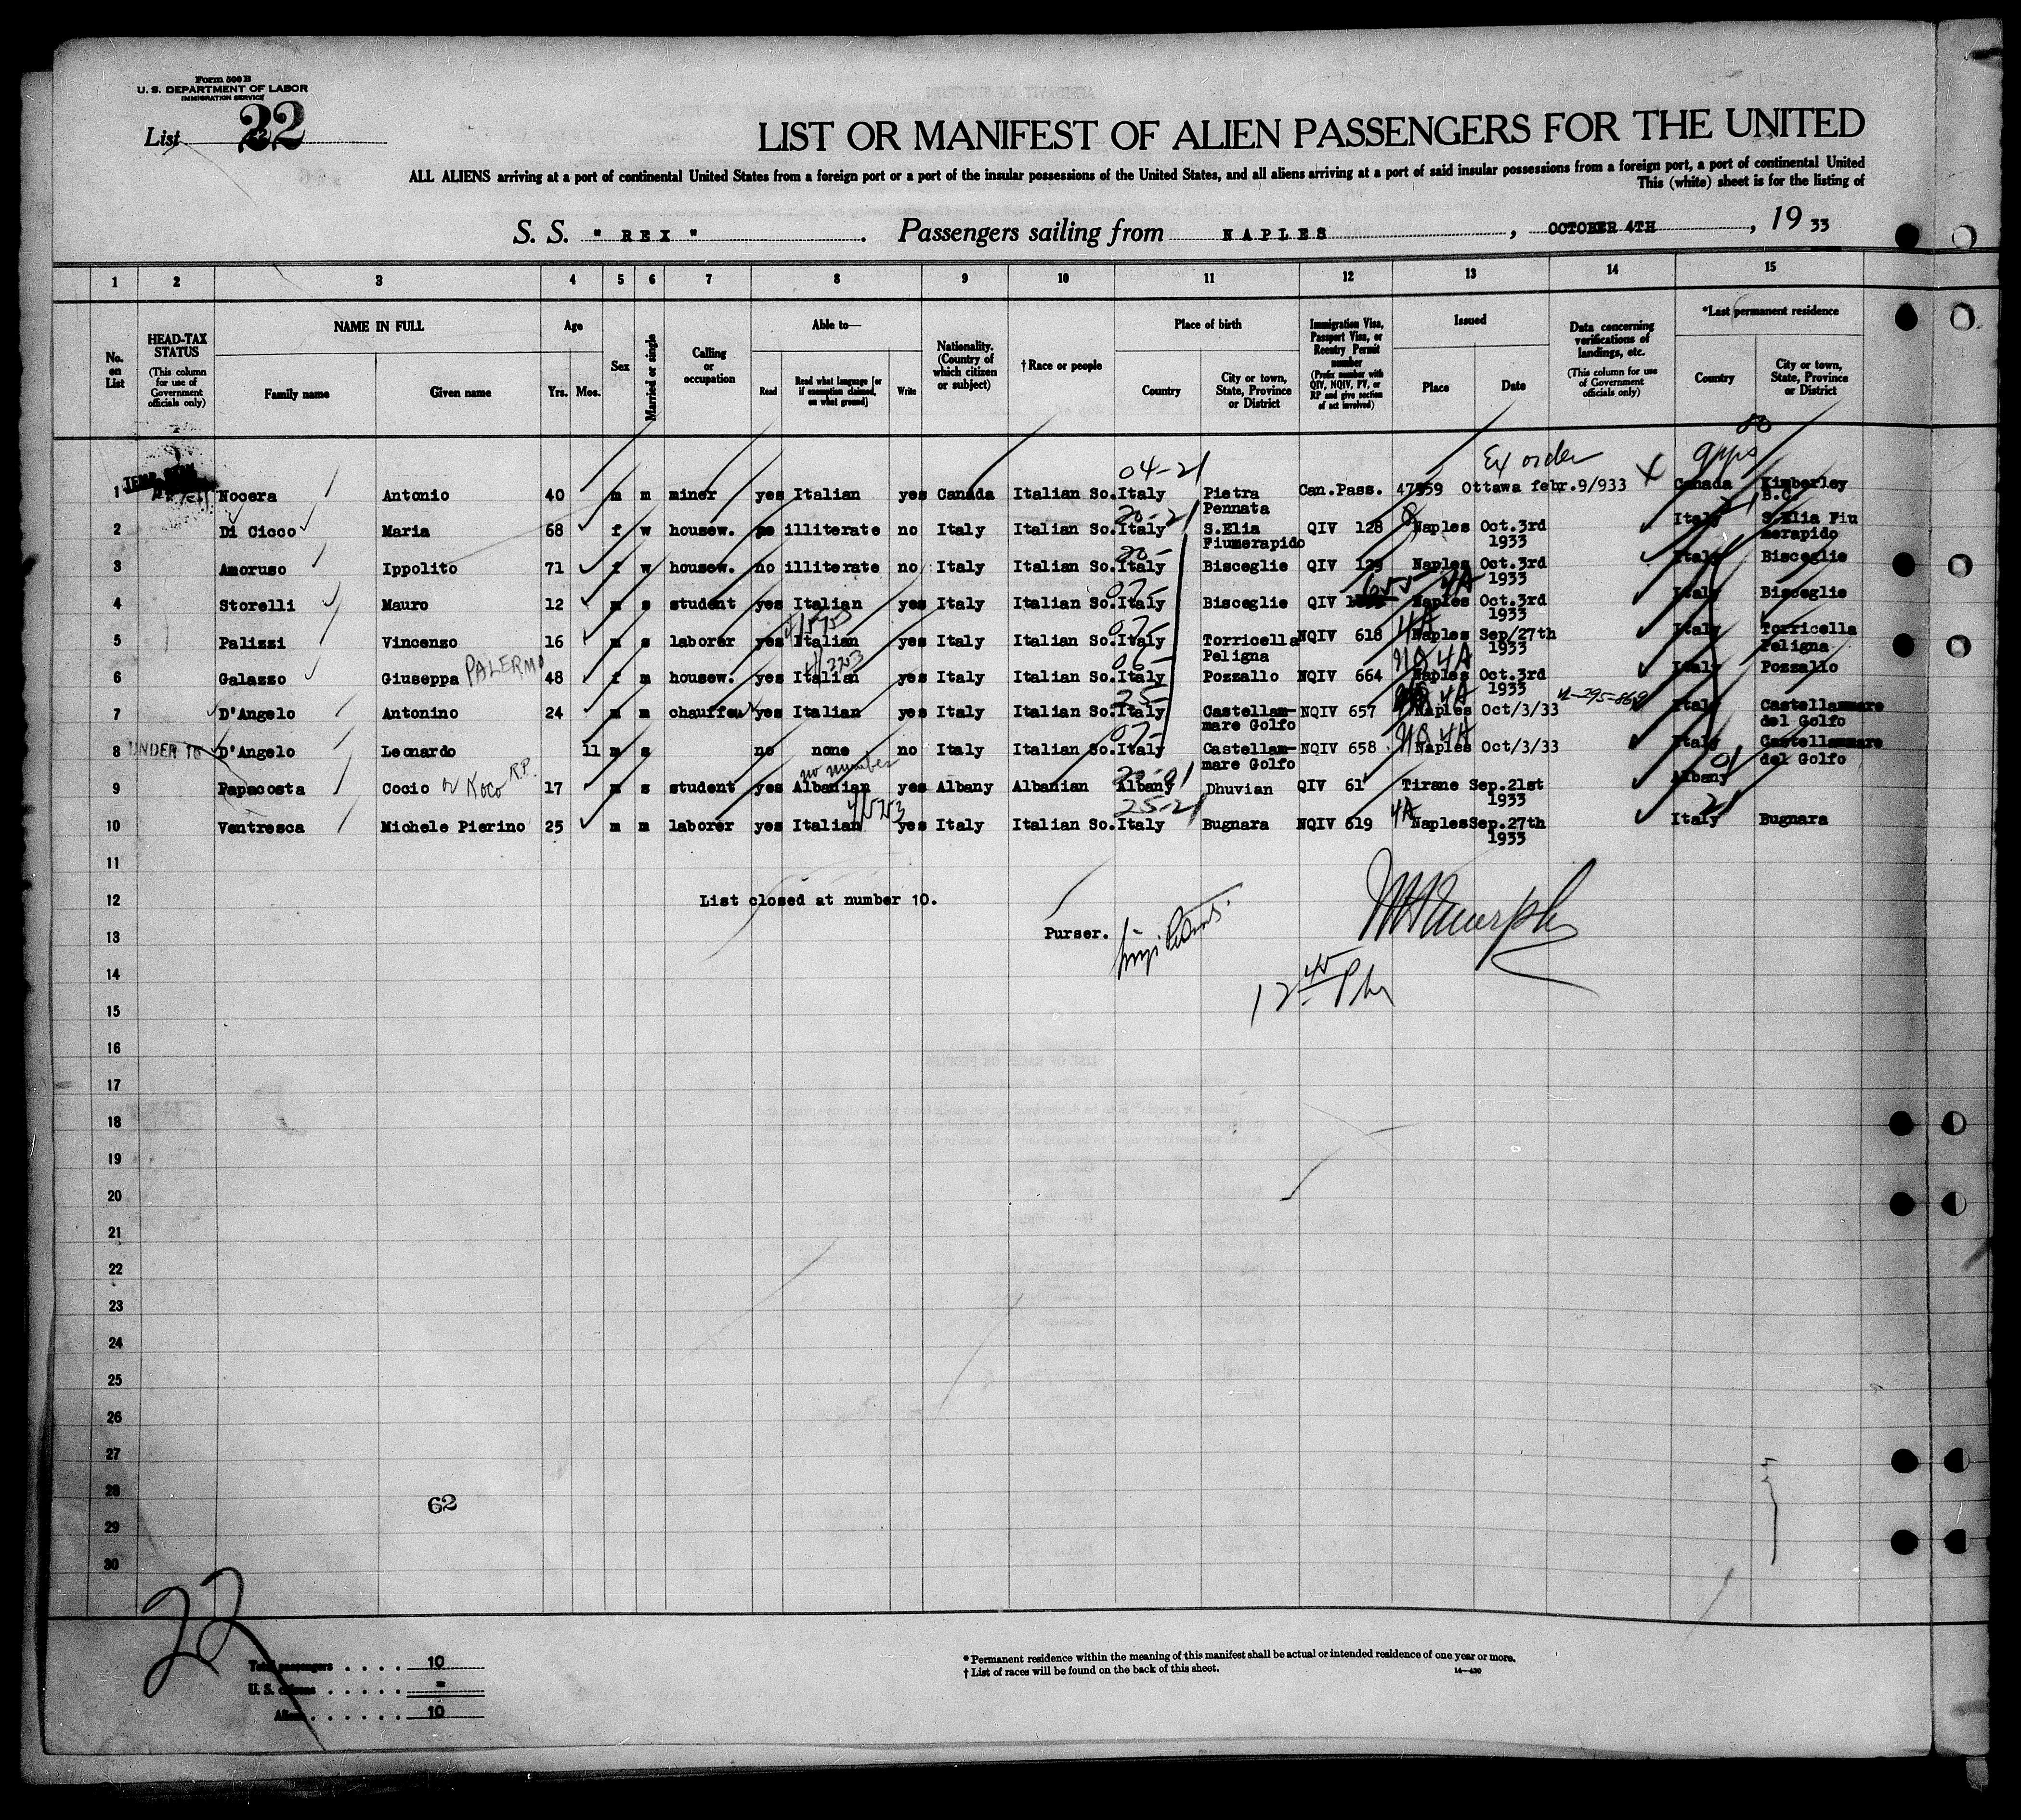 Form 500 B
U. S. DEPARTMENT OF LABOR
IMMIGRATION SERVICE
List 22
LIST OR MANIFEST OF ALIEN PASSENGERS FOR THE UNITED
ALL ALIENS arriving at a port of continental United States from a foreign port or a port of the insular possessions of the United States, and all aliens arriving at a port of said insular possessions from a foreign port, a port of continental United
This (white) sheet is for the listing of
S. S. "REX". Passengers sailing from NAPLES, OCTOBER 4TH, 19 33
1 2 3 4 5 6 7 8 9 10 11 12 13 14 15
No. on List
HEAD-TAX STATUS (This column for use of Government officials only)
NAME IN FULL Family name Given name
Age Yrs. Mos.
Sex
Married or single
Calling or occupation
Able to— Read Read what language [or if exemption claimed, on what ground] Write
Nationality. (Country of which citizen or subject)
† Race or people
Place of birth Country City or town, State, Province or District
Immigration Visa, Passport Visa, or Reentry Permit number (Prefix number with QIV, NQIV, PV, or RP and give section of act involved)
Issued Place Date
Data concerning verifications of landings, etc. (This column for use of Government officials only)
*Last permanent residence Country City or town, State, Province or District
04-21 Ex order
1 Nocera Antonio 40 m m miner yes Italian yes Canada Italian So. Italy Pietra Pennata Can.Pass. 47559 Ottawa febr.9/933 Canada Kimberley B.C.
20-21
2 Di Cicco Maria 68 f w housew. no illiterate no Italy Italian So. Italy S.Elia Fiumerapido QIV 128 Naples Oct.3rd 1933 Italy S.Elia Fiu merapido
20-
3 Amoruso Ippolito 71 f w housew. no illiterate no Italy Italian So. Italy Bisceglie QIV 129 Naples Oct.3rd 1933 Italy Bisceglie
07- 655 4A
4 Storelli Mauro 12 m s student yes Italian yes Italy Italian So. Italy Bisceglie QIV Naples Oct.3rd 1933 Italy Bisceglie
4/5753 07- 4A
5 Palizzi Vincenzo 16 m s laborer yes Italian yes Italy Italian So. Italy Torricella Peligna NQIV 618 Naples Sep/27th 1933 Italy Torricella Peligna
06- NQ 4A
6 Galazzo Giuseppa PALERMO 48 f m housew. yes Italian yes Italy Italian So. Italy Pozzallo NQIV 664 Naples Oct.3rd 1933 Italy Pozzallo
25- 4A
7 D'Angelo Antonino 24 m m chauffeu yes Italian yes Italy Italian So. Italy Castellam- mare Golfo NQIV 657 Naples Oct/3/33 Italy Castellammare del Golfo
07- NQ 4A
8 UNDER 16 D'Angelo Leonardo 11 m s no none no Italy Italian So. Italy Castellam- mare Golfo NQIV 658 Naples Oct/3/33 Italy Castellammare del Golfo
no number 01
9 Papacosta Cocio or Koco R.P. 17 m s student yes Albanian yes Albany Albanian Albany Dhuvian QIV 61 Tirane Sep.21st 1933 Albany
4/5753 25-21 4A 21
10 Ventresca Michele Pierino 25 m m laborer yes Italian yes Italy Italian So. Italy Bugnara NQIV 619 Naples Sep.27th 1933 Italy Bugnara
11
12 List closed at number 10.
13 Purser.
14
12 45 PM
15
16
17
18
19
20
21
22
23
24
25
26
27
28
62
29
30
22
Total passengers . . . . 10
U. S. citizens . . . . . =
Aliens . . . . . . 10
* Permanent residence within the meaning of this manifest shall be actual or intended residence of one year or more.
† List of races will be found on the back of this sheet.
14—430